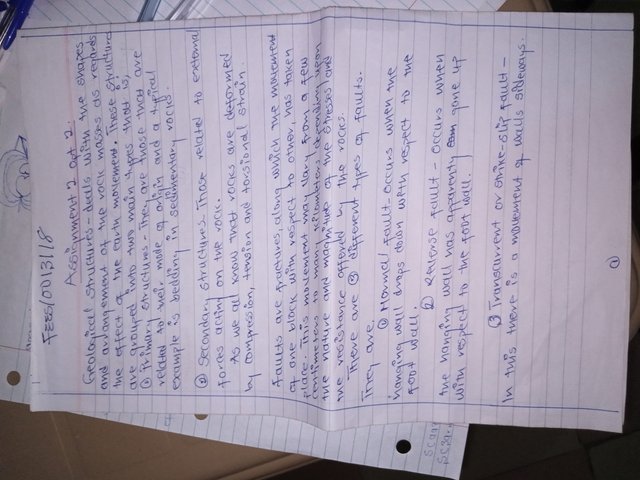 FEES/00131/18
Assignment 2 Set 2.
Geological structures - deals with the shapes
and arrangement of the rock masses as regards
the effect of the earth movement. These structures
are grouped into two main types that is;
① Primary structures - They are those that are
related to their mode of origin and a typical
example is bedding in sedimentary rocks.
② Secondary structures. Those related to external
forces acting on the rock.
As we all know that rocks are deformed
by compression, tension and torsional strain.
Faults are fractures along which the movement
of one block with respect to other has taken
place. This movement may vary from a few
centimeters to many kilometers depending upon
the nature and magnitude of the stresses and
the resistance offered by the rocks.
There are 3 different types of faults.
They are.
① Normal fault - occurs when the
hanging wall drops down with respect to the
foot wall.
② Reverse fault - occurs when
the hanging wall has apparently gone up
with respect to the foot wall.
③ Transcurrent or strike-slip fault -
In this there is a movement of walls sideways.
①